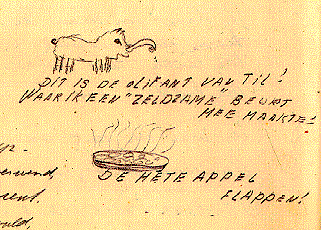 DIT IS DE OLIFANT VAN TIL!
WAAR IK EEN "ZELDZAME" BEURT
MEE MAAKTE!
DE HETE APPEL
FLAPPEN!